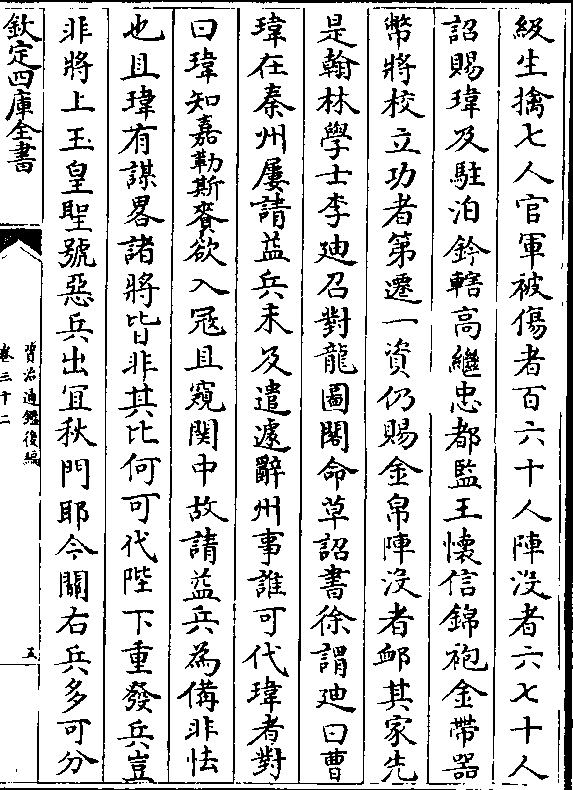 級生擒七人官軍被傷者百六十人陣沒者六七十人
詔賜瑋及駐泊鈐轄高繼忠都監王懷信錦袍金帶器
幣將校立功者第遷一資仍賜金帛陣沒者卹其家先
是翰林學士李迪召對龍圖閣命草詔書徐謂迪曰曹
瑋在秦州屢請益兵未及遣遽辭州事誰可代瑋者對
曰瑋知嘉勒斯賚欲入冦且窺関中故請益兵為備非怯
也且瑋有謀畧諸將皆非其比何可代陛下重發兵豈
非將上玉皇聖號惡兵出宜秋門耶今關右兵多可分
欽定四庫全書
資治通鑑後編
卷三十二
五